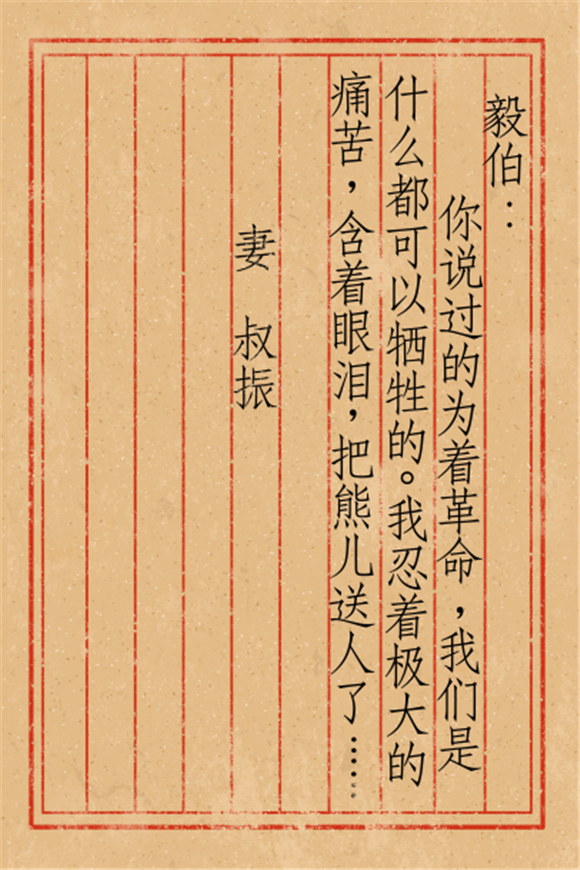 毅伯：
你说过的为着革命，我们是
什么都可以牺牲的。我忍着极大的
痛苦，含着眼泪，把熊儿送人了……
妻 叔振